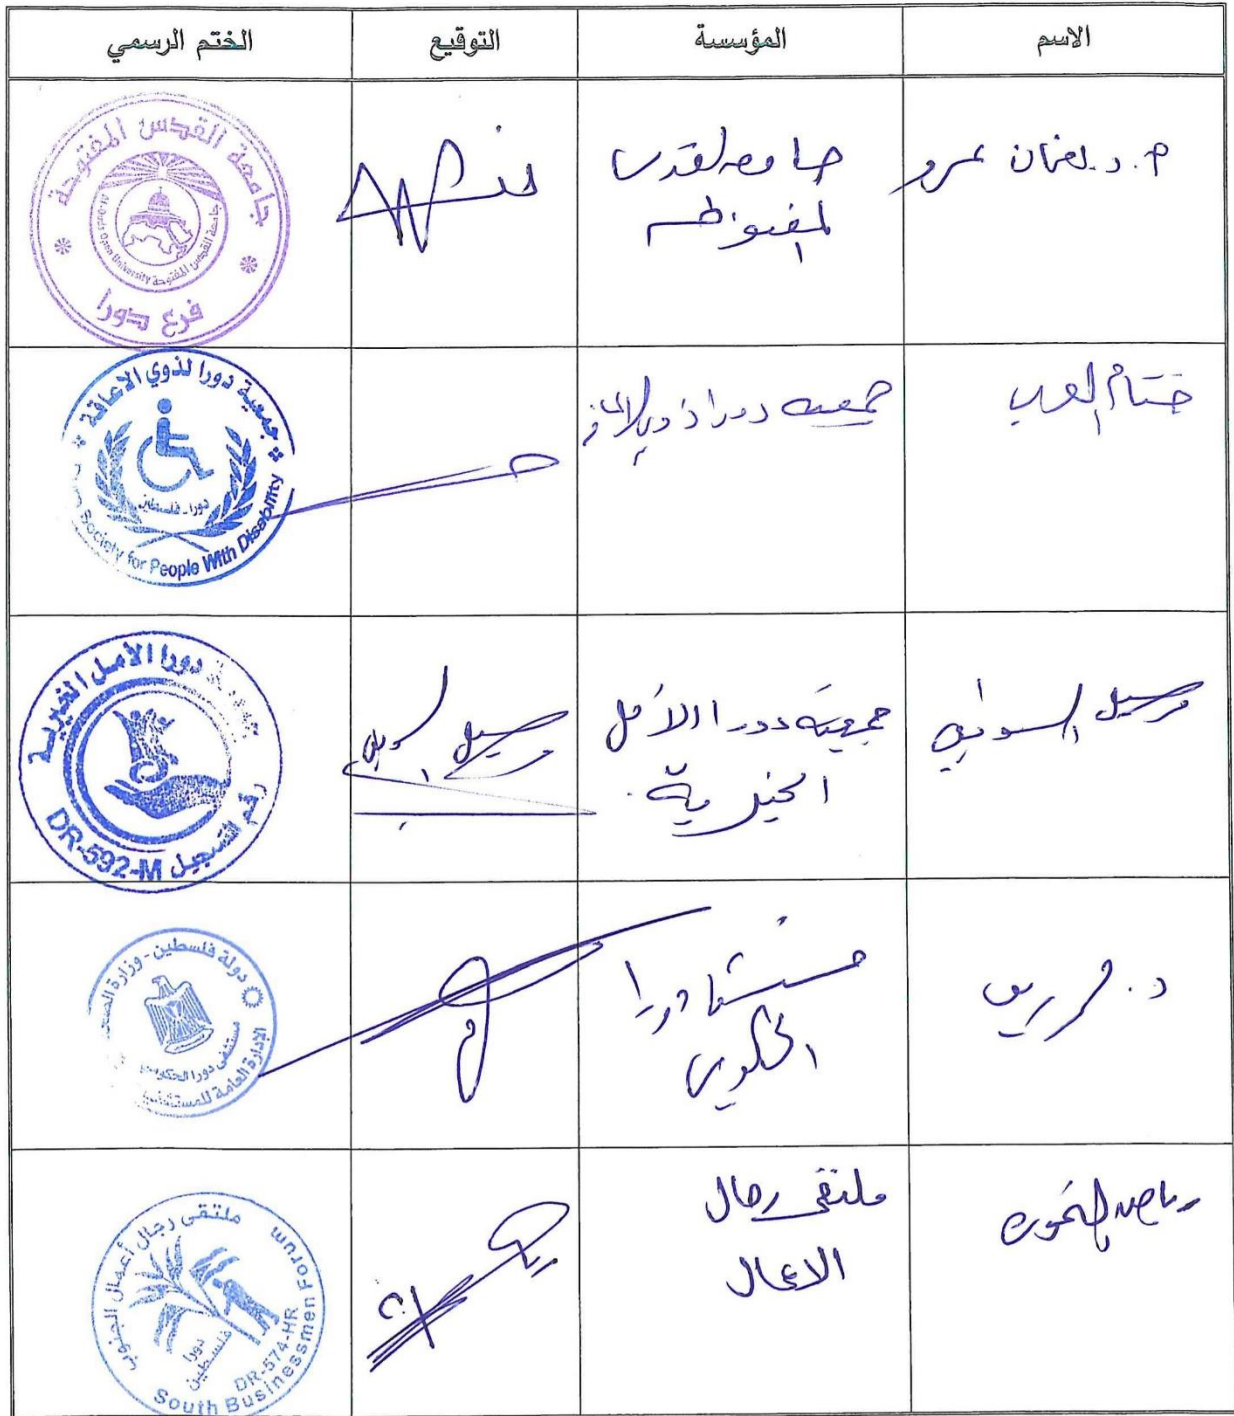 الاسم المؤسسة التوقيع الختم الرسمي
م.د. نعمان عمرو
جامعة القدس
المفتوحة
جامعة القدس المفتوحة
Al-Quds Open University جامعة القدس المفتوحة
فرع دورا
ختام العرب
جمعية دورا ذوي الاعاقة
جمعية دورا لذوي الاعاقة
دورا - فلسطين
Society for People With Disability
السويطي
جمعية دورا الأمل
الخيرية
دورا الأمل الخيرية
رقم التسجيل DR-592-M
د.
مستشفا دورا
الحكومي
دولة فلسطين - وزارة الصحة
مستشفى دورا الحكومي
الإدارة العامة للمستشفيات
ملتقى رجال
الاعمال
ملتقى رجال أعمال الجنوب
دورا
فلسطين
DR-574-HR
South Businessmen Forum